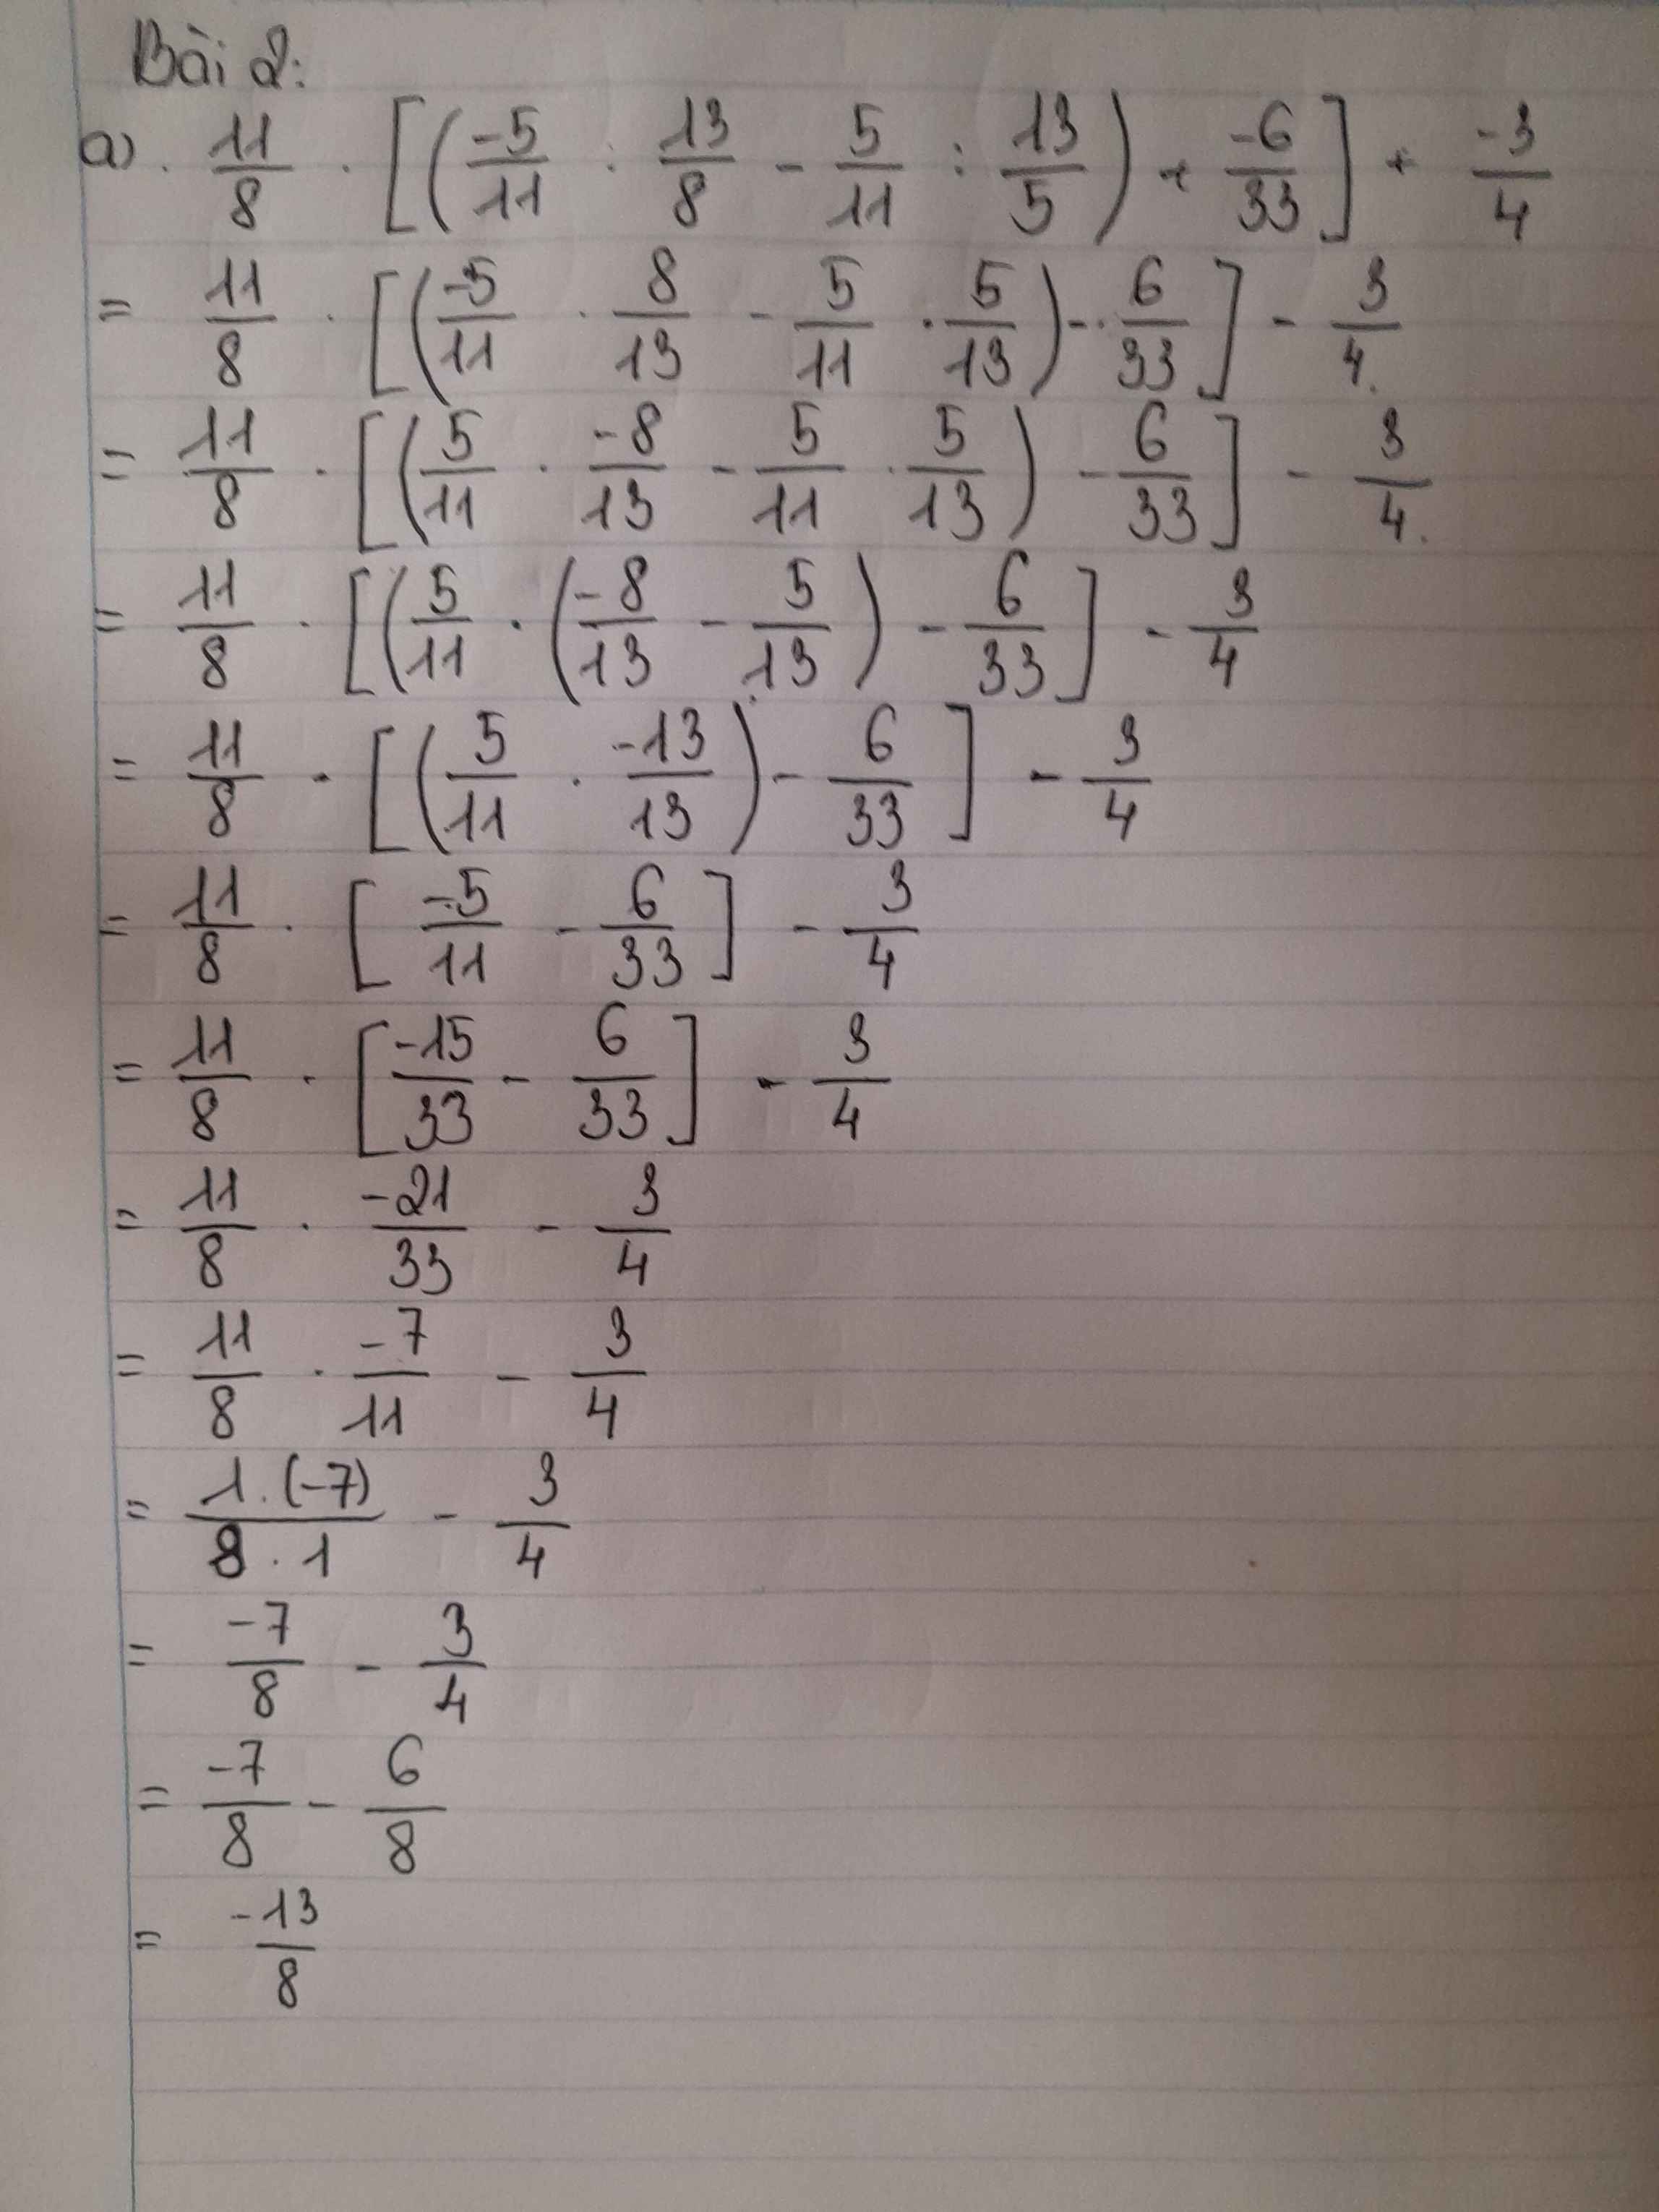 Bài 2:
a) . 11/8 . [(-5/11 : 13/8 - 5/11 : 13/5) + -6/33] + -3/4
= 11/8 . [(-5/11 . 8/13 - 5/11 . 5/13) - 6/33] - 3/4.
= 11/8 . [(5/11 . -8/13 - 5/11 . 5/13) - 6/33] - 3/4.
= 11/8 . [(5/11 . (-8/13 - 5/13) - 6/33] - 3/4
= 11/8 . [(5/11 . -13/13) - 6/33] - 3/4
= 11/8 . [-5/11 - 6/33] - 3/4
= 11/8 . [-15/33 - 6/33] - 3/4
= 11/8 . -21/33 - 3/4
= 11/8 . -7/11 - 3/4
= 1.(-7)/8.1 - 3/4
= -7/8 - 3/4
= -7/8 - 6/8
= -13/8